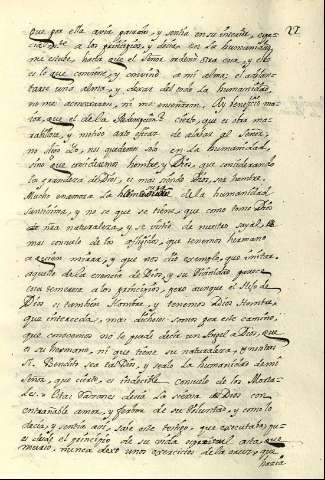 27
que por ella avia passado, y sentia en su interior, espe-
cialmte a los principios, y decia: en la humanidad,
me estube, hasta que el Señor ordenó otra cosa, y ello
es lo que conviene, y convino a mi alma: el adelan-
tarse una alma, y dexar del todo la humanidad,
no me aconsejaron, ni me enseñaron. Ay beneficio ma-
yor, que el de la Redempcion? cierto, que es obra ma-
rabillosa, y motivo arto eficaz de alabar al Señor,
no digo Yo, nos quedemos solo en la humanidad,
sino que consideremos hombre, y Dios, que considerando
la grandeza de Dios, es mas siendo Dios, ser hombre.
Mucho enamora la de la humanidad
Santissima, y no se que se tiene, que como tomó Dios
de nra naturaleza, y se vistió de nuestro sayal, es
mas consuelo de los afligidos, que tenemos hermano
a quien mirar, y que nos dió exemplo, que imitar:
aquello de la esencia de Dios, y su Divinidad parece
cosa temerosa a los principios, pero aunque el Hijo de
Dios es tambien Hombre, y tenemos Dios Hombre,
que interceda, mas dichosos somos por este camino,
que conocemos no lo puede decir un Angel a Dios, que
es su hermano, ni que tiene su naturaleza, y nosotros
si. Bendito sea tal Dios, y sealo la humanidad de mi
Señor, que cierto, es indecible consuelo de los Morta-
les. Estas razones decia la sierva de Dios con
entrañable amor, y fervor de su Voluntad, y como lo
decia, y sentia assi, sale este testigo, que executaba, pu-
es desde el principio de su vida espiritual asta, que
murio, nunca dexó unos exercicios de la cruz, que
hacia